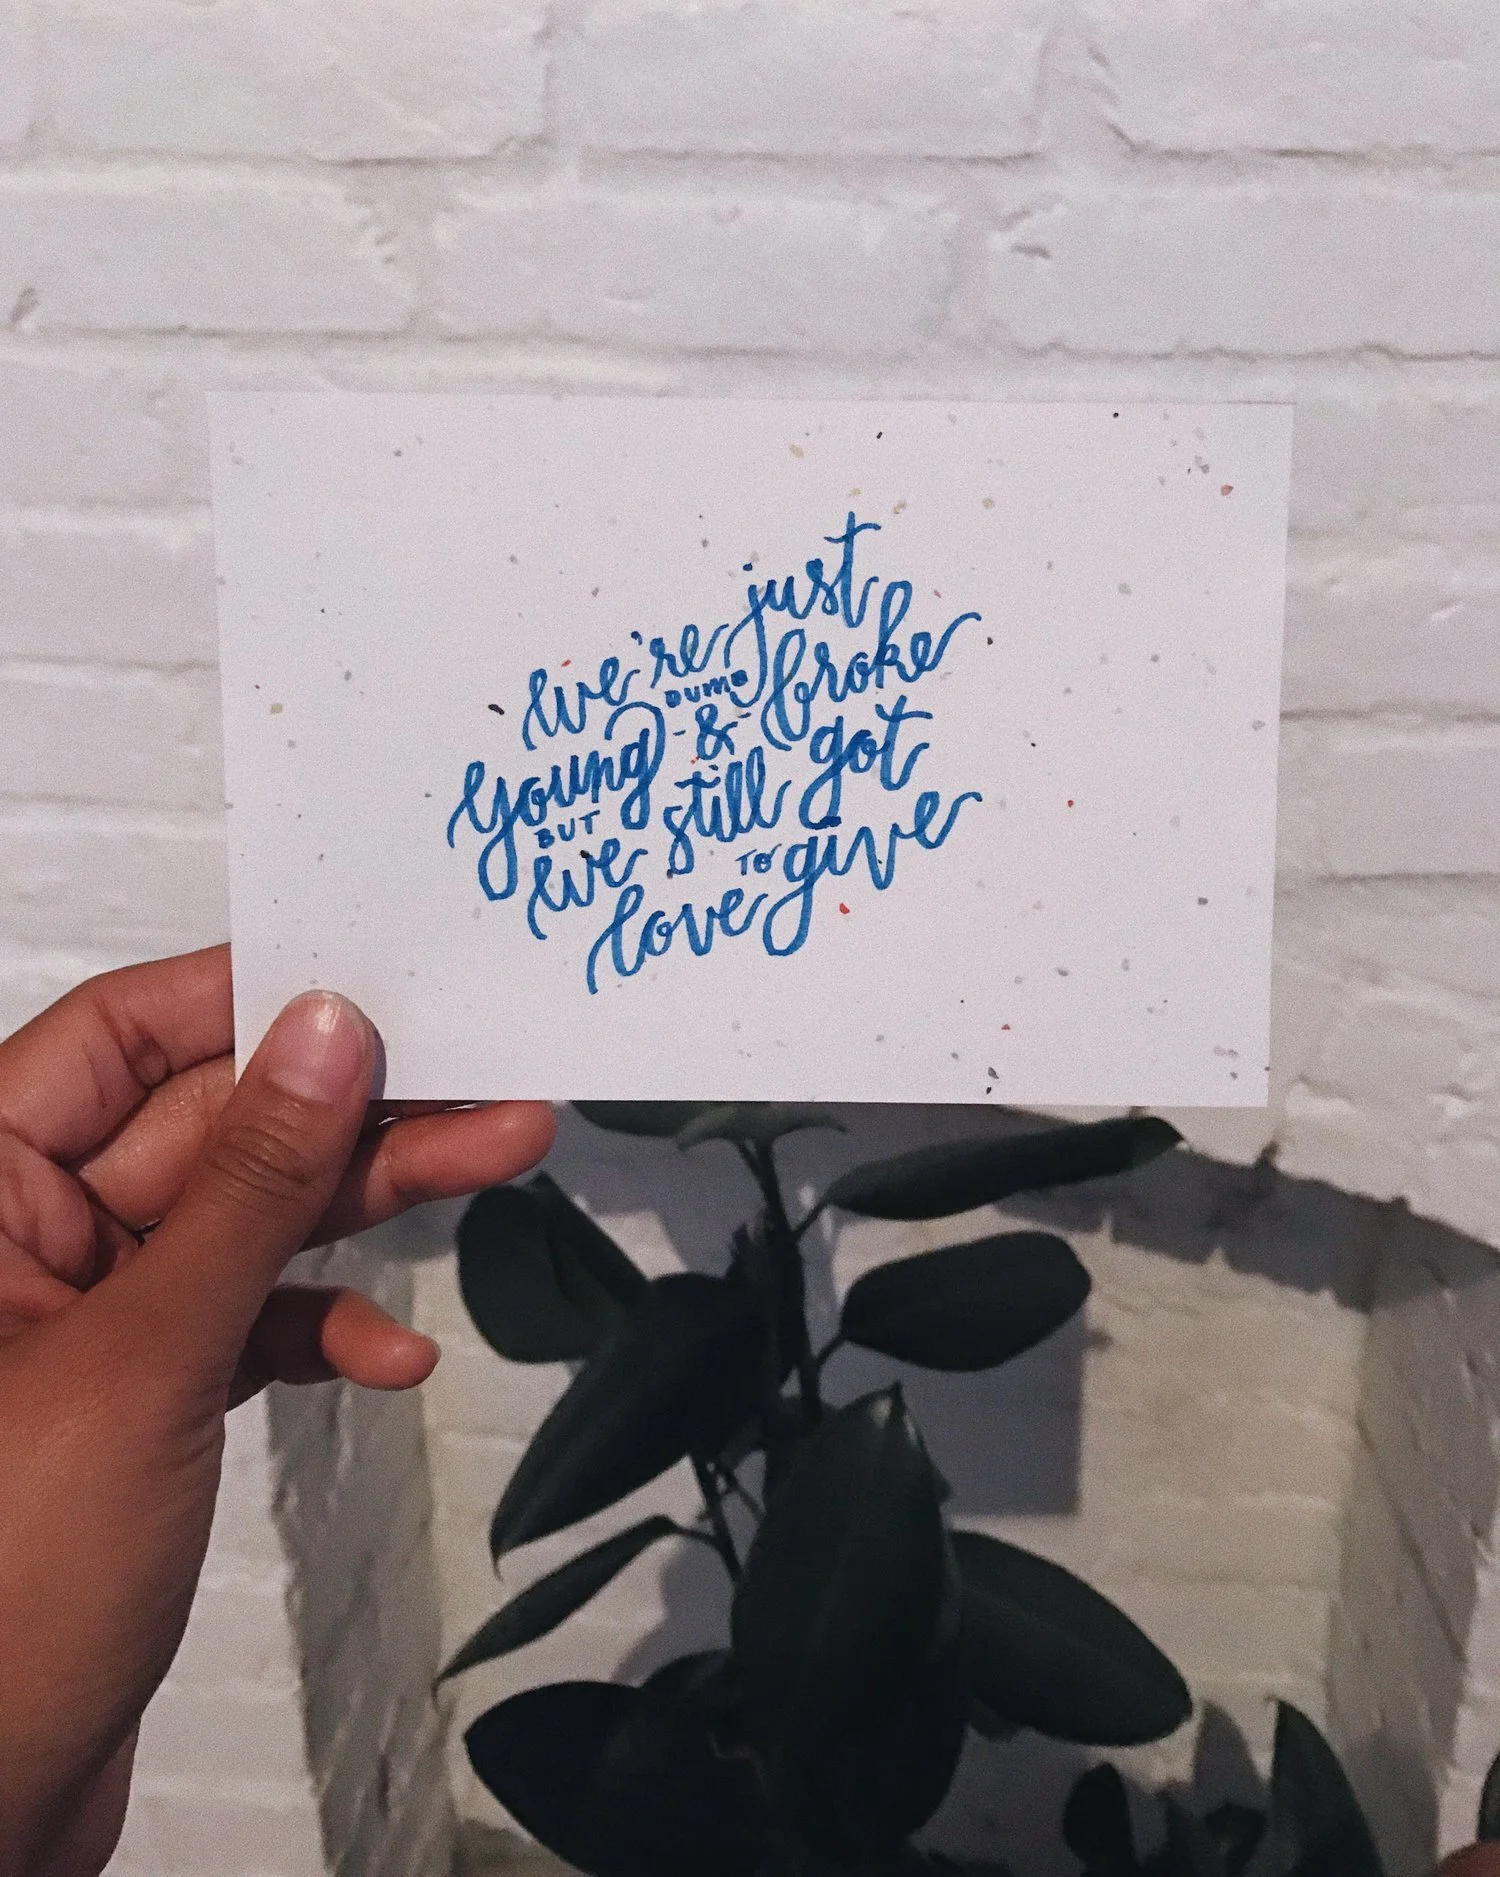 we're just
young DUMB & broke
BUT we still got
love TO give